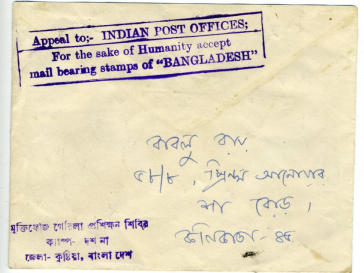 Appeal to;- INDIAN POST OFFICES;
For the sake of Humanity accept
mail bearing stamps of "BANGLADESH"
বাবলু রায়
৫৮/৮, প্রিন্স আনোয়ার
শা রোড,
কলিকাতা - ৪৫
মুক্তিফৌজ গেরিলা প্রশিক্ষন শিবির
ক্যাম্প- দর্শনা
জেলা- কুষ্টিয়া, বাংলা দেশ